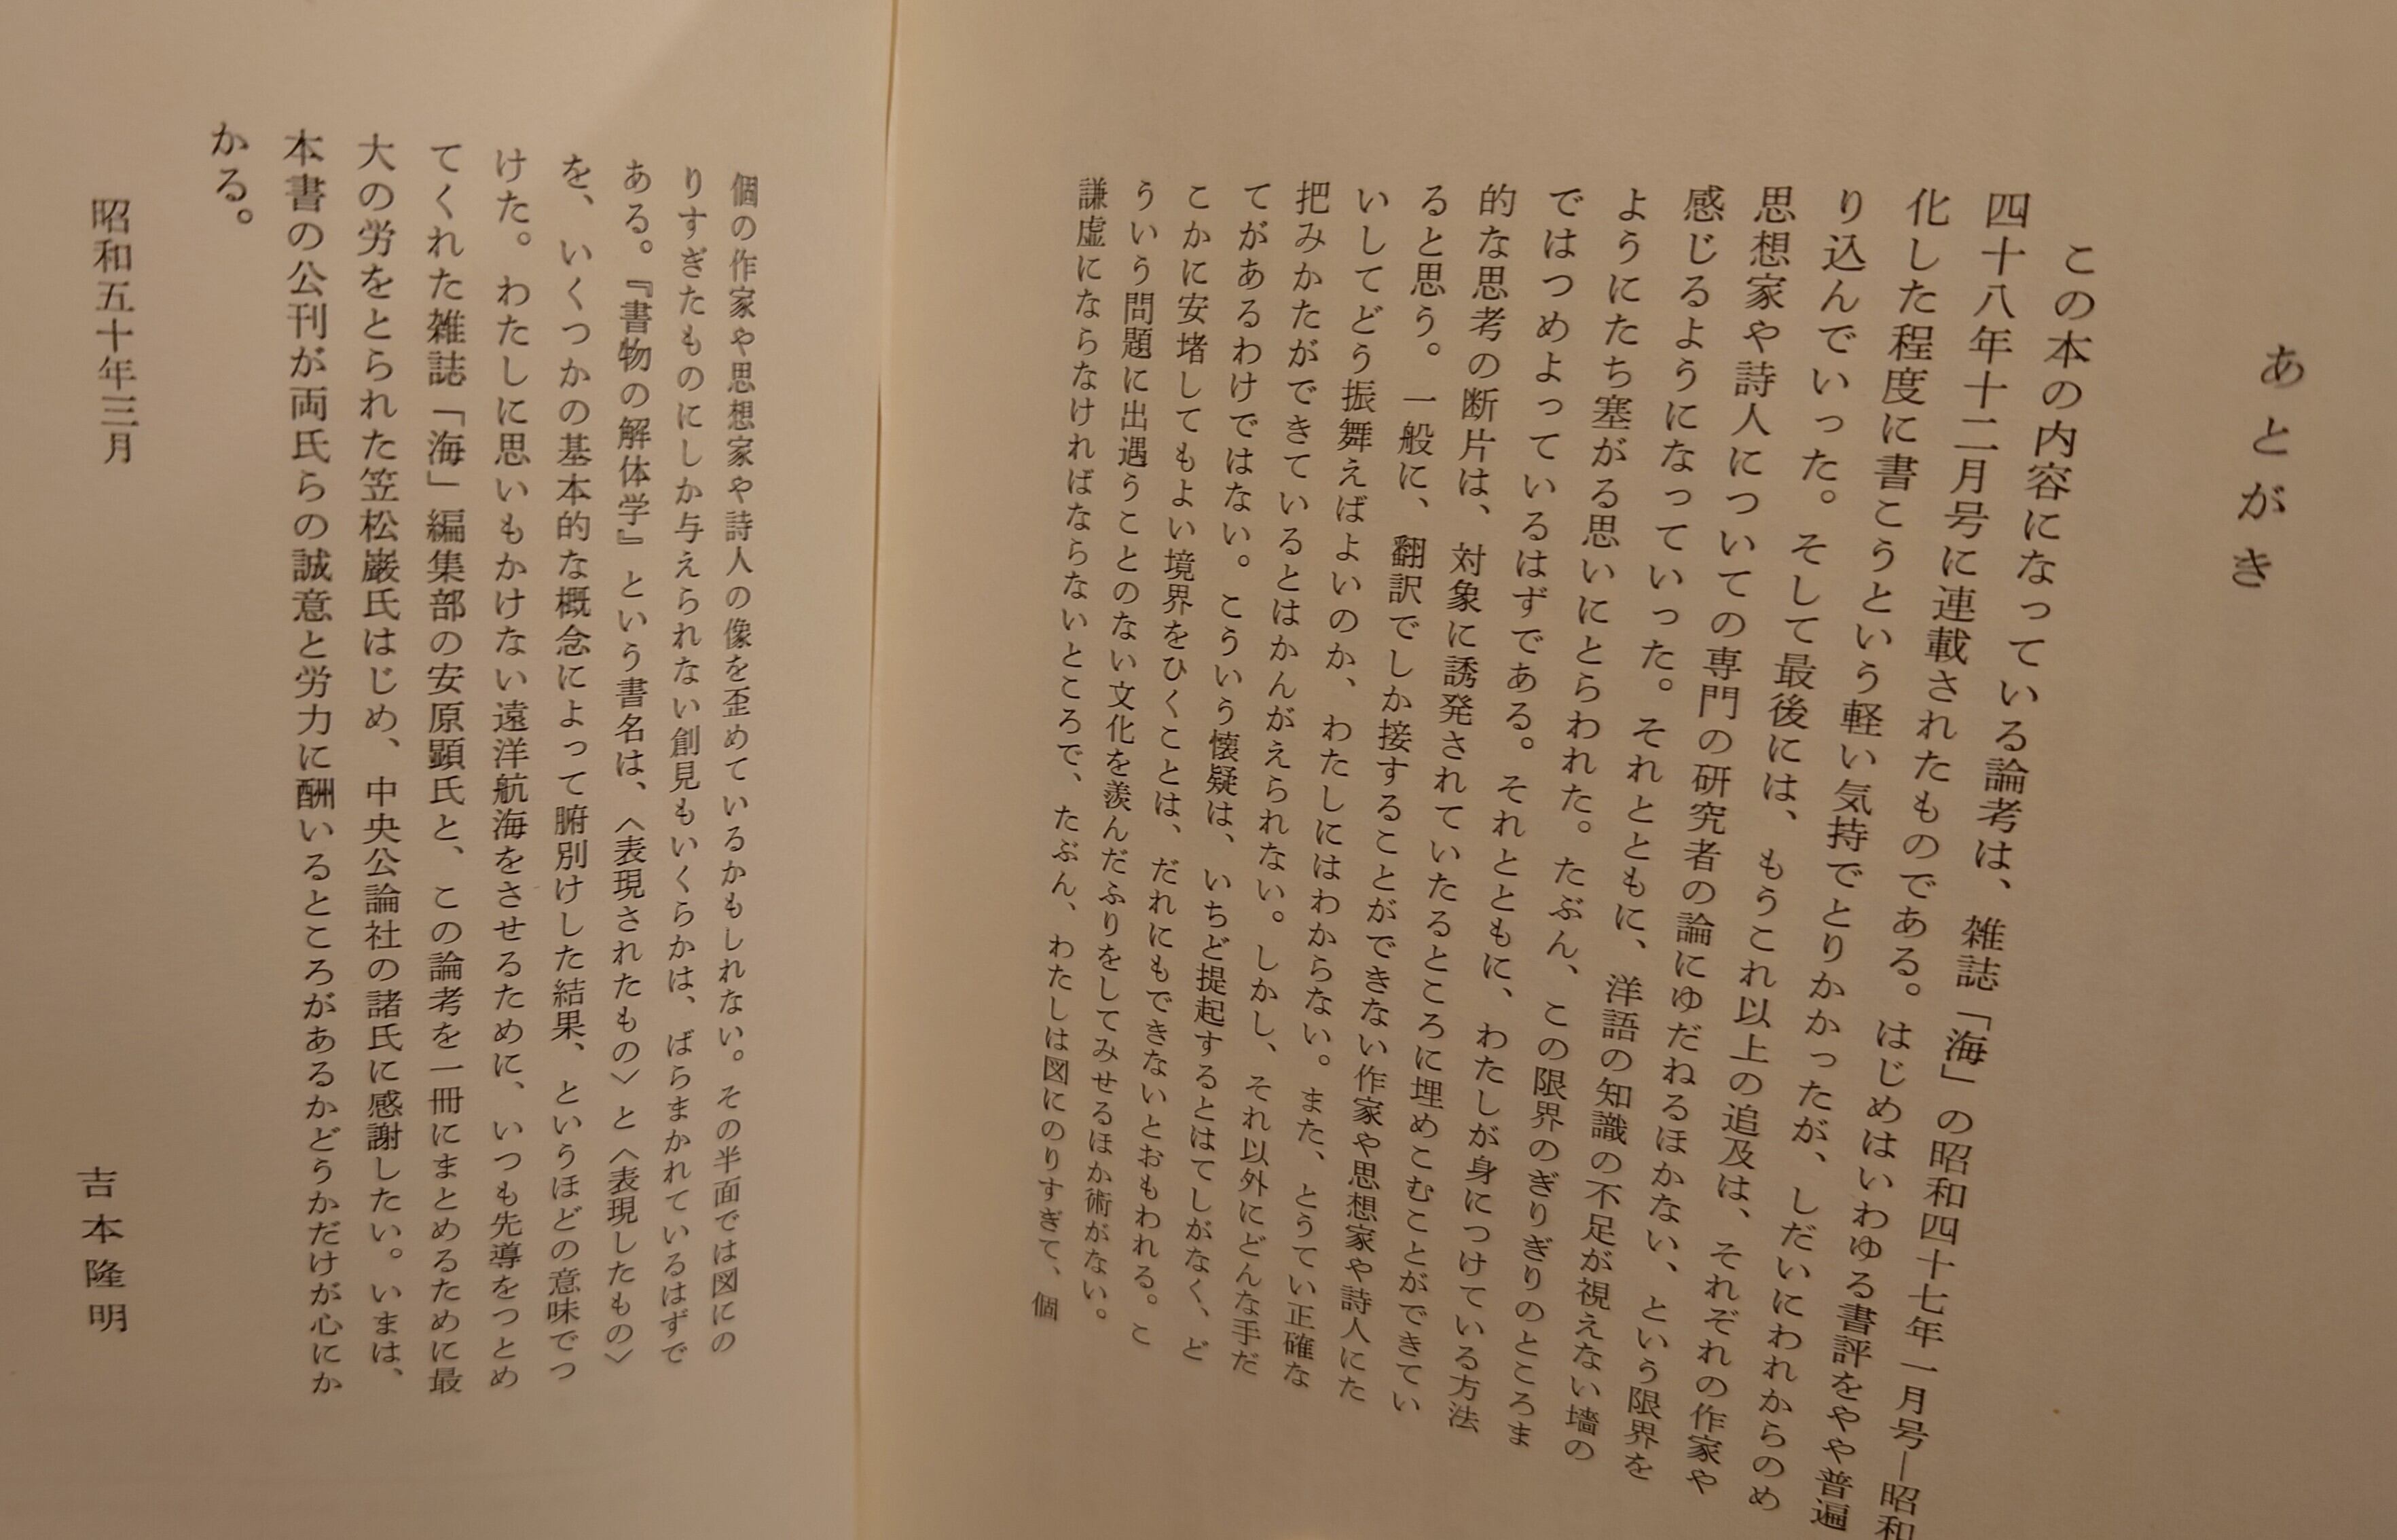 あとがき
この本の内容になっている論考は、雑誌「海」の昭和四十七年一月号―昭和
四十八年十二月号に連載されたものである。はじめはいわゆる書評をやや普遍
化した程度に書こうという軽い気持でとりかかったが、しだいにわれからのめ
り込んでいった。そして最後には、もうこれ以上の追及は、それぞれの作家や
思想家や詩人についての専門の研究者の論にゆだねるほかない、という限界を
感じるようになっていった。それとともに、洋語の知識の不足が視えない墻の
ようにたち塞がる思いにとらわれた。たぶん、この限界のぎりぎりのところま
ではつめよっているはずである。それとともに、わたしが身につけている方法
的な思考の断片は、対象に誘発されていたるところに埋めこむことができてい
ると思う。一般に、翻訳でしか接することができない作家や思想家や詩人にた
いしてどう振舞えばよいのか、わたしにはわからない。また、とうてい正確な
把みかたができているとはかんがえられない。しかし、それ以外にどんな手だ
てがあるわけではない。こういう懐疑は、いちど提起するとはてしがなく、ど
こかに安堵してもよい境界をひくことは、だれにもできないとおもわれる。こ
ういう問題に出遇うことのない文化を羨んだふりをしてみせるほか術がない。
謙虚にならなければならないところで、たぶん、わたしは図にのりすぎて、個
個の作家や思想家や詩人の像を歪めているかもしれない。その半面では図にの
りすぎたものにしか与えられない創見もいくらかは、ばらまかれているはずで
ある。『書物の解体学』という書名は、〈表現されたもの〉と〈表現したもの〉
を、いくつかの基本的な概念によって腑別けした結果、というほどの意味でつ
けた。わたしに思いもかけない遠洋航海をさせるために、いつも先導をつとめ
てくれた雑誌「海」編集部の安原顕氏と、この論考を一冊にまとめるために最
大の労をとられた笠松巌氏はじめ、中央公論社の諸氏に感謝したい。いまは、
本書の公刊が両氏らの誠意と労力に酬いるところがあるかどうかだけが心にか
かる。
昭和五十年三月
吉本隆明